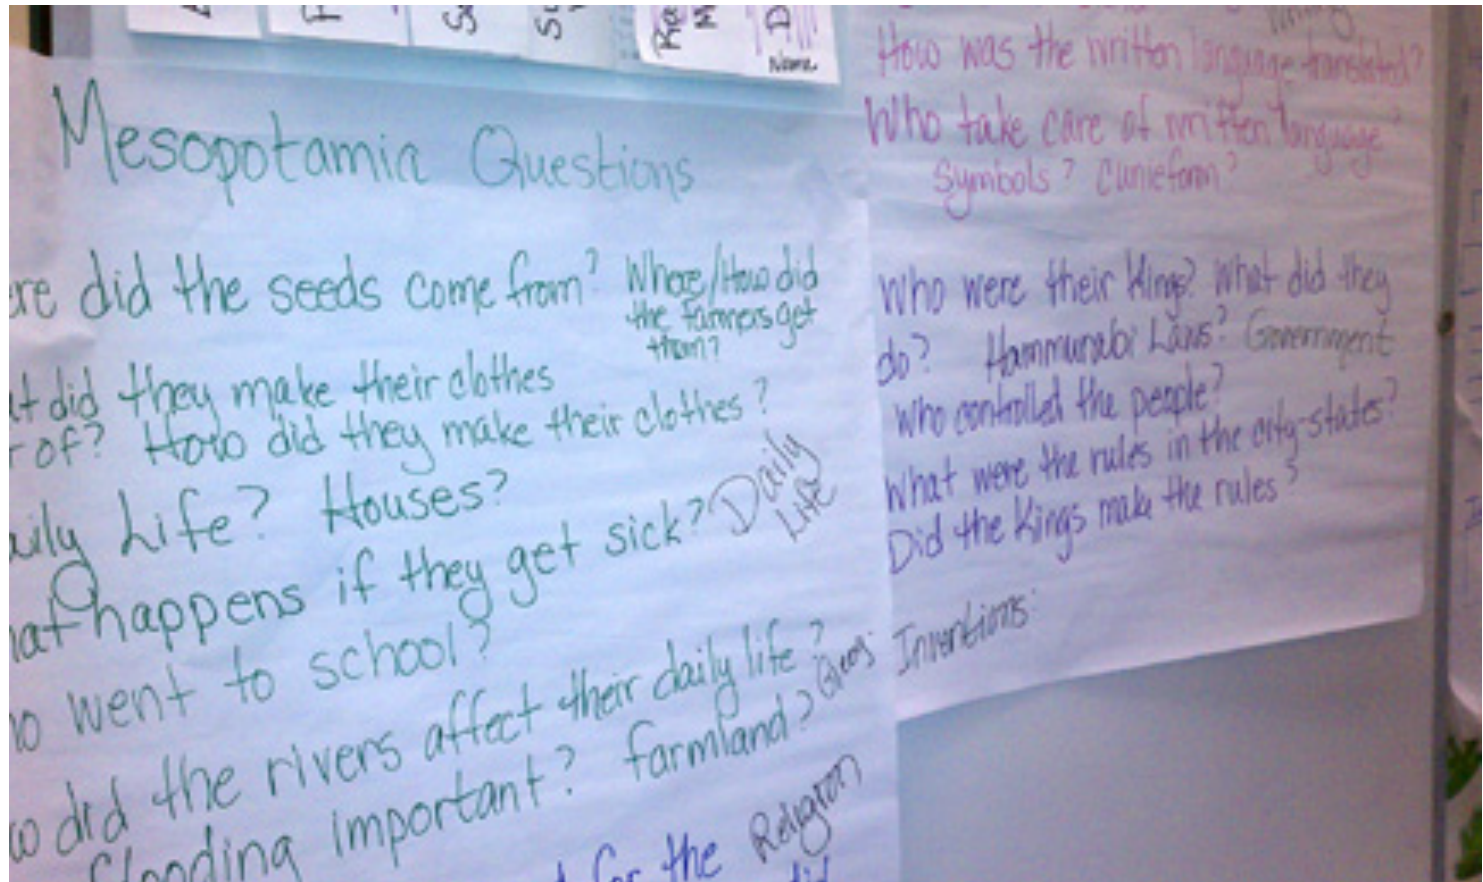 Name
Mesopotamia Questions
re did the seeds come from? Where/How did
the farmers get
them?
at did they make their clothes
of? How did they make their clothes?
aily Life? Houses?
Daily
Life
hat happens if they get sick?
o went to school?
w did the rivers affect their daily life?
flooding important? farmland?
Religion
for the
did
How was the written language translated?
Who take care of written language
Symbols? Cunieform?
Who were their Kings? What did they
do? Hammurabi Laws? Government
Who controlled the people?
What were the rules in the city-states?
Did the Kings make the rules?
Inventions: